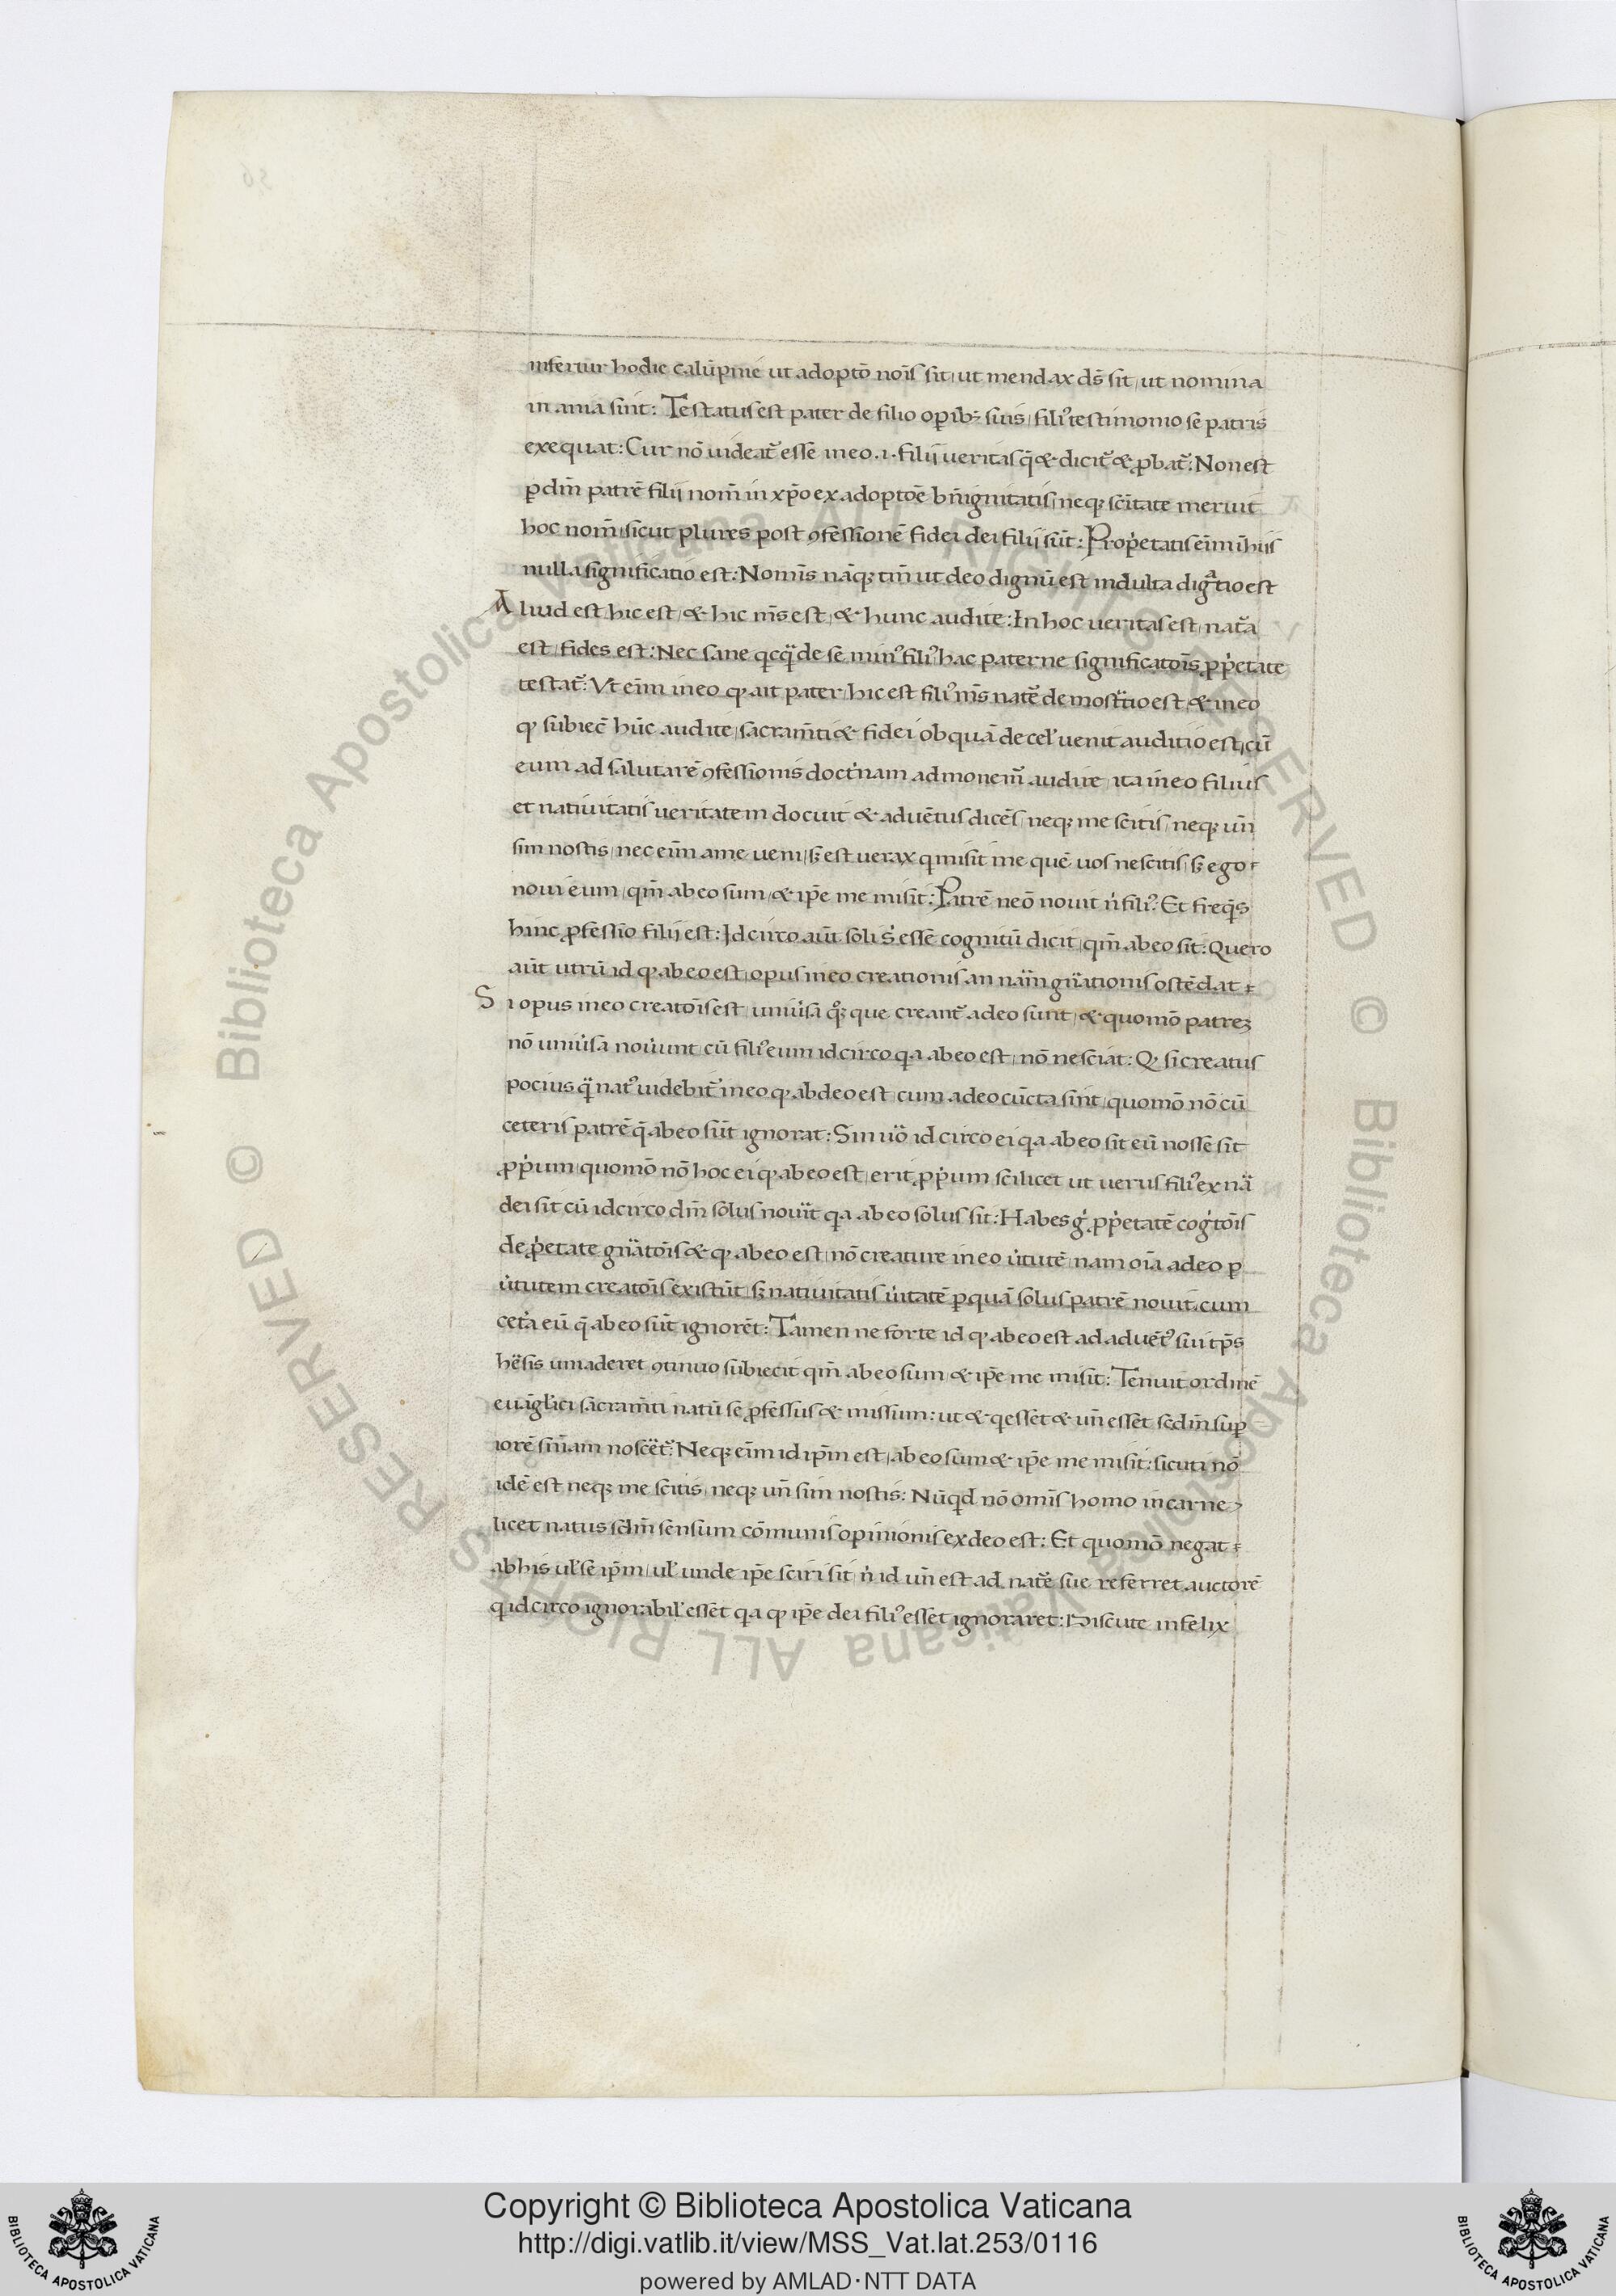 infertur hodie calūpnie ut adoptō noīs sit, ut mendax ds̄ sit, ut nomina
inania sint: Testatus est pater de filio opibꝫ suis, filiꝰ testimonio se patris
exequat: Cur nō uideat᷑ esse in eo .i. filij ueritas q̄ & dicit᷑ & ꝓbat᷑: Non est
ꝑ dm̄ patrē filij nom̄ in xp̄o ex adoptōe bn̄ignitatis, neqꝫ scītate meruit
hoc nom̄, sicut plures post ꝯfessionē fidei dei filij sūt: Prop̍etatis eīm ī hijs
nulla significatio est: Nomīs nāqꝫ tm̄ ut deo dignū est indulta dig̊tio est
Aliud est hic est, & hic m̄s est, & hunc audite: In hoc ueritas est, nat᷑a
est, fides est: Nec sane qcq̈ de se minꝰ filiꝰ hac paterne significatoīs ꝓp̍etate
testat᷑: Vt eīm in eo ꝙ ait pater, hic est filiꝰ m̄s nat᷑e demost᷑tio est, & in eo
ꝙ subiec̄ hūc audite, sacram̄ti & fidei ob quā de cel̕ uenit auditio est, cū
eum ad salutarē ꝯfessionis doct̍nam admonem᷑ audire, ita in eo filius
et natiuitatis ueritatem docuit & aduētus dicēs, neqꝫ me scitis, neqꝫ un̄
sim nostis, nec eīm a me ueni, sꝫ est uerax q misit me quē uos nescitis, sꝫ ego
noui eum, qm̄ ab eo sum, & ip̄e me misit: Patrē neō nouit n̍ filiꝰ: Et freq̄s
hinc ꝓfessio filij est: Idcirco aūt soli s̍ esse cognitū dicit, qm̄ ab eo sit: Quero
aūt utrū id ꝙ ab eo est, opus in eo creationis an nām gn̈ationis ostēdat
Si opus in eo creatoīs est, uniu̍sa qͦꝫ que creant᷑ a deo sunt, & quomō patreꝫ
nō uniu̍sa nou̍unt, cū filiꝰ eum idcirco qa ab eo est, nō nesciat: Ꝙ si creatus
pocius q̈ natꝰ uidebit᷑ in eo ꝙ ab deo est, cum a deo cūcta sint, quomō nō cū
ceteris patrē q̄ ab eo sūt ignorat: Sin uͦ idcirco ei qa ab eo sit eū nosse sit
ꝓp̍um, quomō nō hoc ei ꝙ ab eo est, erit ꝓp̍um scilicet ut uerus filiꝰ ex nā
dei sit cū idcirco dm̄ solus nouit qa ab eo solus sit: Habes g̍ ꝓp̍etatē cog̍toīs
de ꝓp̍etate gn̈atoīs & ꝙ ab eo est, nō creature in eo u̍tutē, nam oīa a deo ꝑ
u̍tutem creatoīs existūt, sꝫ natiuitatis u̍itatē ꝑ quā solus patrē nouit, cum
cet̍a eū q̄ ab eo sūt ignorēt: Tamen ne forte id ꝙ ab eo est ad aduētꝰ sui tp̄s
hēsis uniaderet ꝯtinuo subiecit qm̄ ab eo sum & ip̄e me misit: Tenuit ordinē
euāgl̕ici sacram̄ti natū se ꝓfessus & missum: ut & q essēt & un̄ essēt scdm̄ sup
iorē sn̄iam noscēt᷑: Neqꝫ eīm id ip̄m est, ab eo sum & ip̄e me misit: sicuti nō
idē est neqꝫ me scitis, neqꝫ un̄ sim nostis: Nūqd nō omīs homo in carne
licet natus scdm̄ sensum cōmunis opinionis ex deo est: Et quomō negat
ab his ul̕ se ip̄m, ul̕ unde ip̄e sciri sit, n̍ id un̄ est ad nat᷑e sue referret auctorē
q idcirco ignorabil̕ essēt qa ꝙ ip̄e dei filiꝰ essēt ignoraret: Discute infelix
Copyright © Biblioteca Apostolica Vaticana
http://digi.vatlib.it/view/MSS_Vat.lat.253/0116
powered by AMLAD·NTT DATA